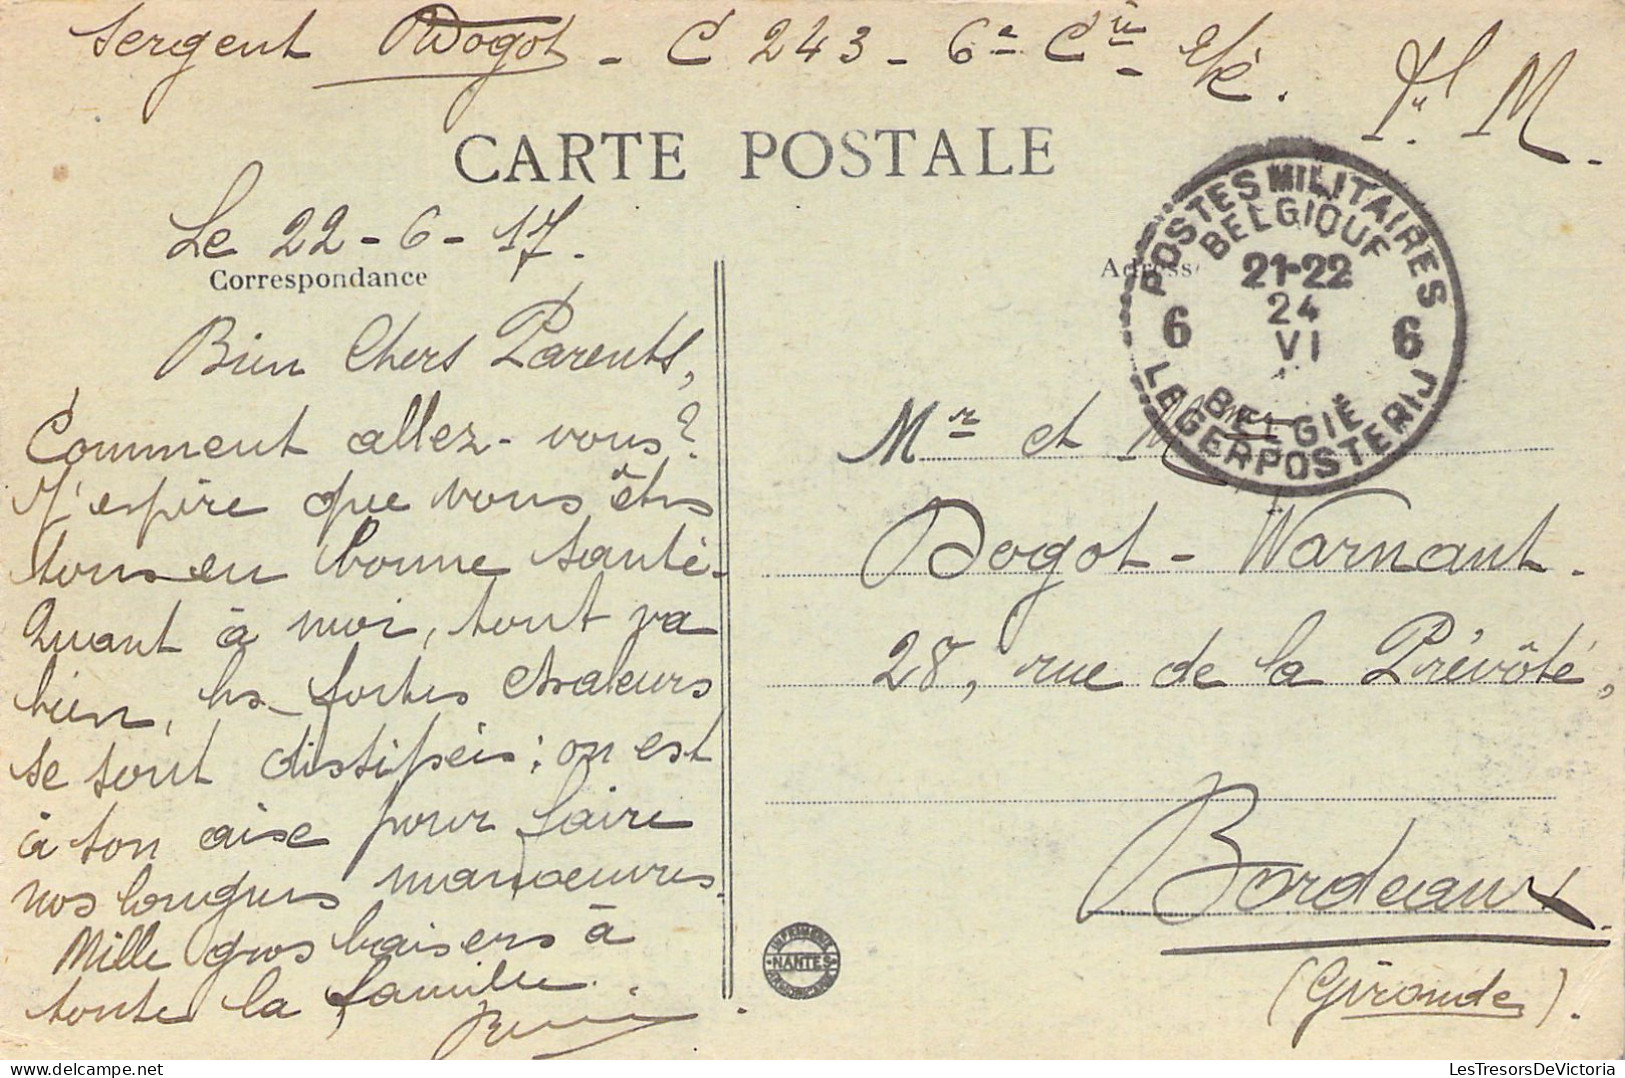 Sergent Dogot - C 243 - 6e Cie
CARTE POSTALE
Le 22-6-17.
Correspondance
Bien Chers Parents,
Comment allez-vous?
J'espère que vous êtes
tous en bonne santé.
Quant à moi, tout va
bien, les fortes chaleurs
se sont dissipées; on est
à son aise pour faire
nos longues manoeuvres.
Mille gros baisers à
toute la famille.
Adresse
POSTES MILITAIRES
BELGIQUE
21-22
24
VI
6 6
BELGIË
LEGERPOSTERIJ
Mr et Mme
Dogot-Warnant.
28, rue de la Prévôté,
Bordeaux
(Gironde).
IMPRIMERIE
NANTES
LesTresorsDeVictoria